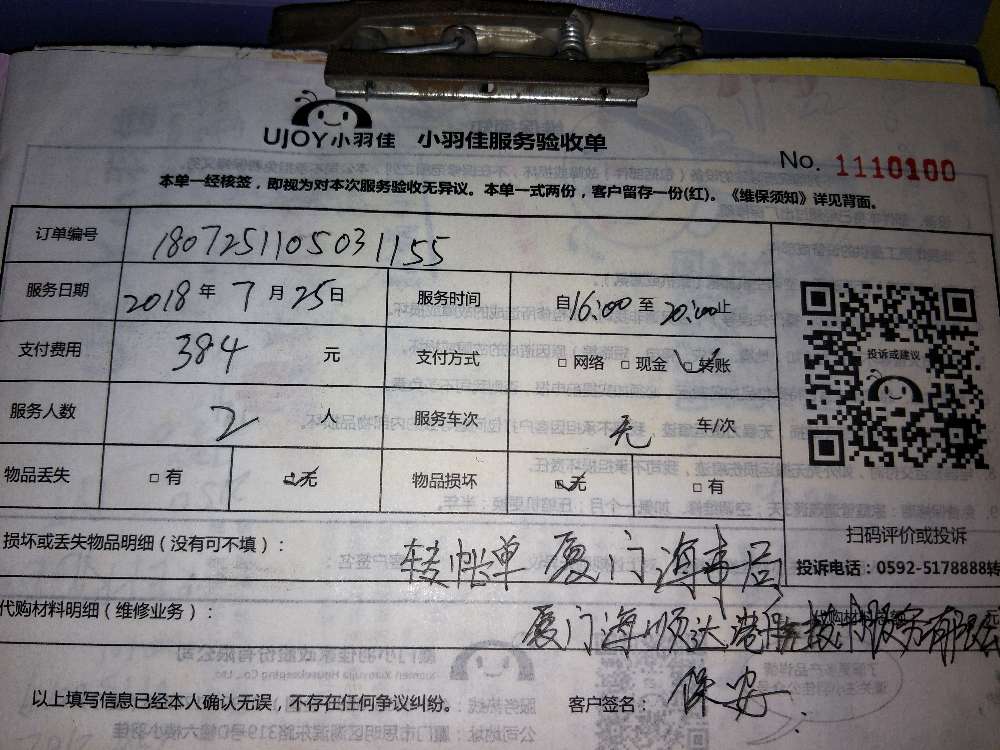 UJOY小羽佳 小羽佳服务验收单
No. 1110100
本单一经核签，即视为对本次服务验收无异议。本单一式两份，客户留存一份(红)。《维保须知》详见背面。
订单编号 1807251105031155
服务日期 2018年7月25日 服务时间 自16:00至20:00止
支付费用 384元 支付方式 □网络 □现金 □转账
投诉或建议
服务人数 2人 服务车次 无 车/次
物品丢失 □有 □无 物品损坏 □无 □有
扫码评价或投诉
损坏或丢失物品明细（没有可不填）： 转帐单 厦门海事局
投诉电话：0592-5178888转
代购材料明细（维修业务）： 厦门海顺达港 服务有限公
以上填写信息已经本人确认无误，不存在任何争议纠纷。 客户签名： 保安